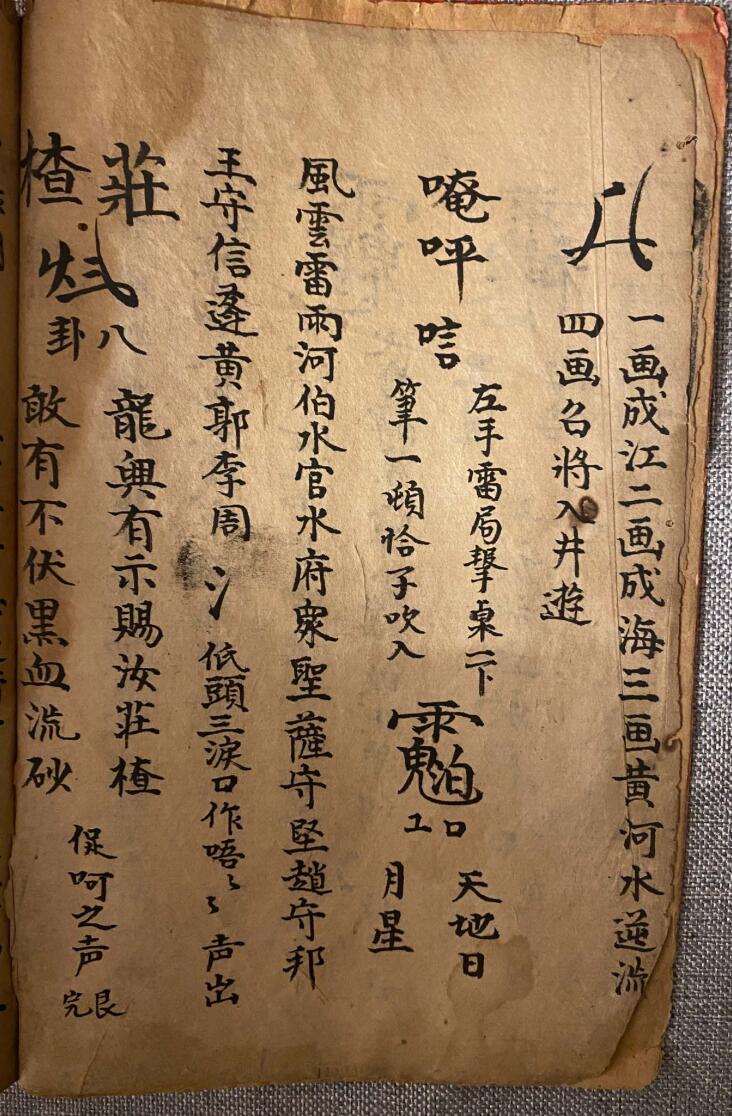 一画成江二画成海三画黄河水逆流
四画名將入井遊
唵呼唁
左手雷局擊桌一下
筆一頓恰子吹入
天地日
月星
風雲雷雨河伯水官水府衆聖薩守堅趙守邦
王守信逢黄郭李周
低頭三淚口作唔〻〻声出
莊
八
龍興有示賜汝莊楂
楂
卦
敢有不伏黒血流砂
促呵之声
艮
完